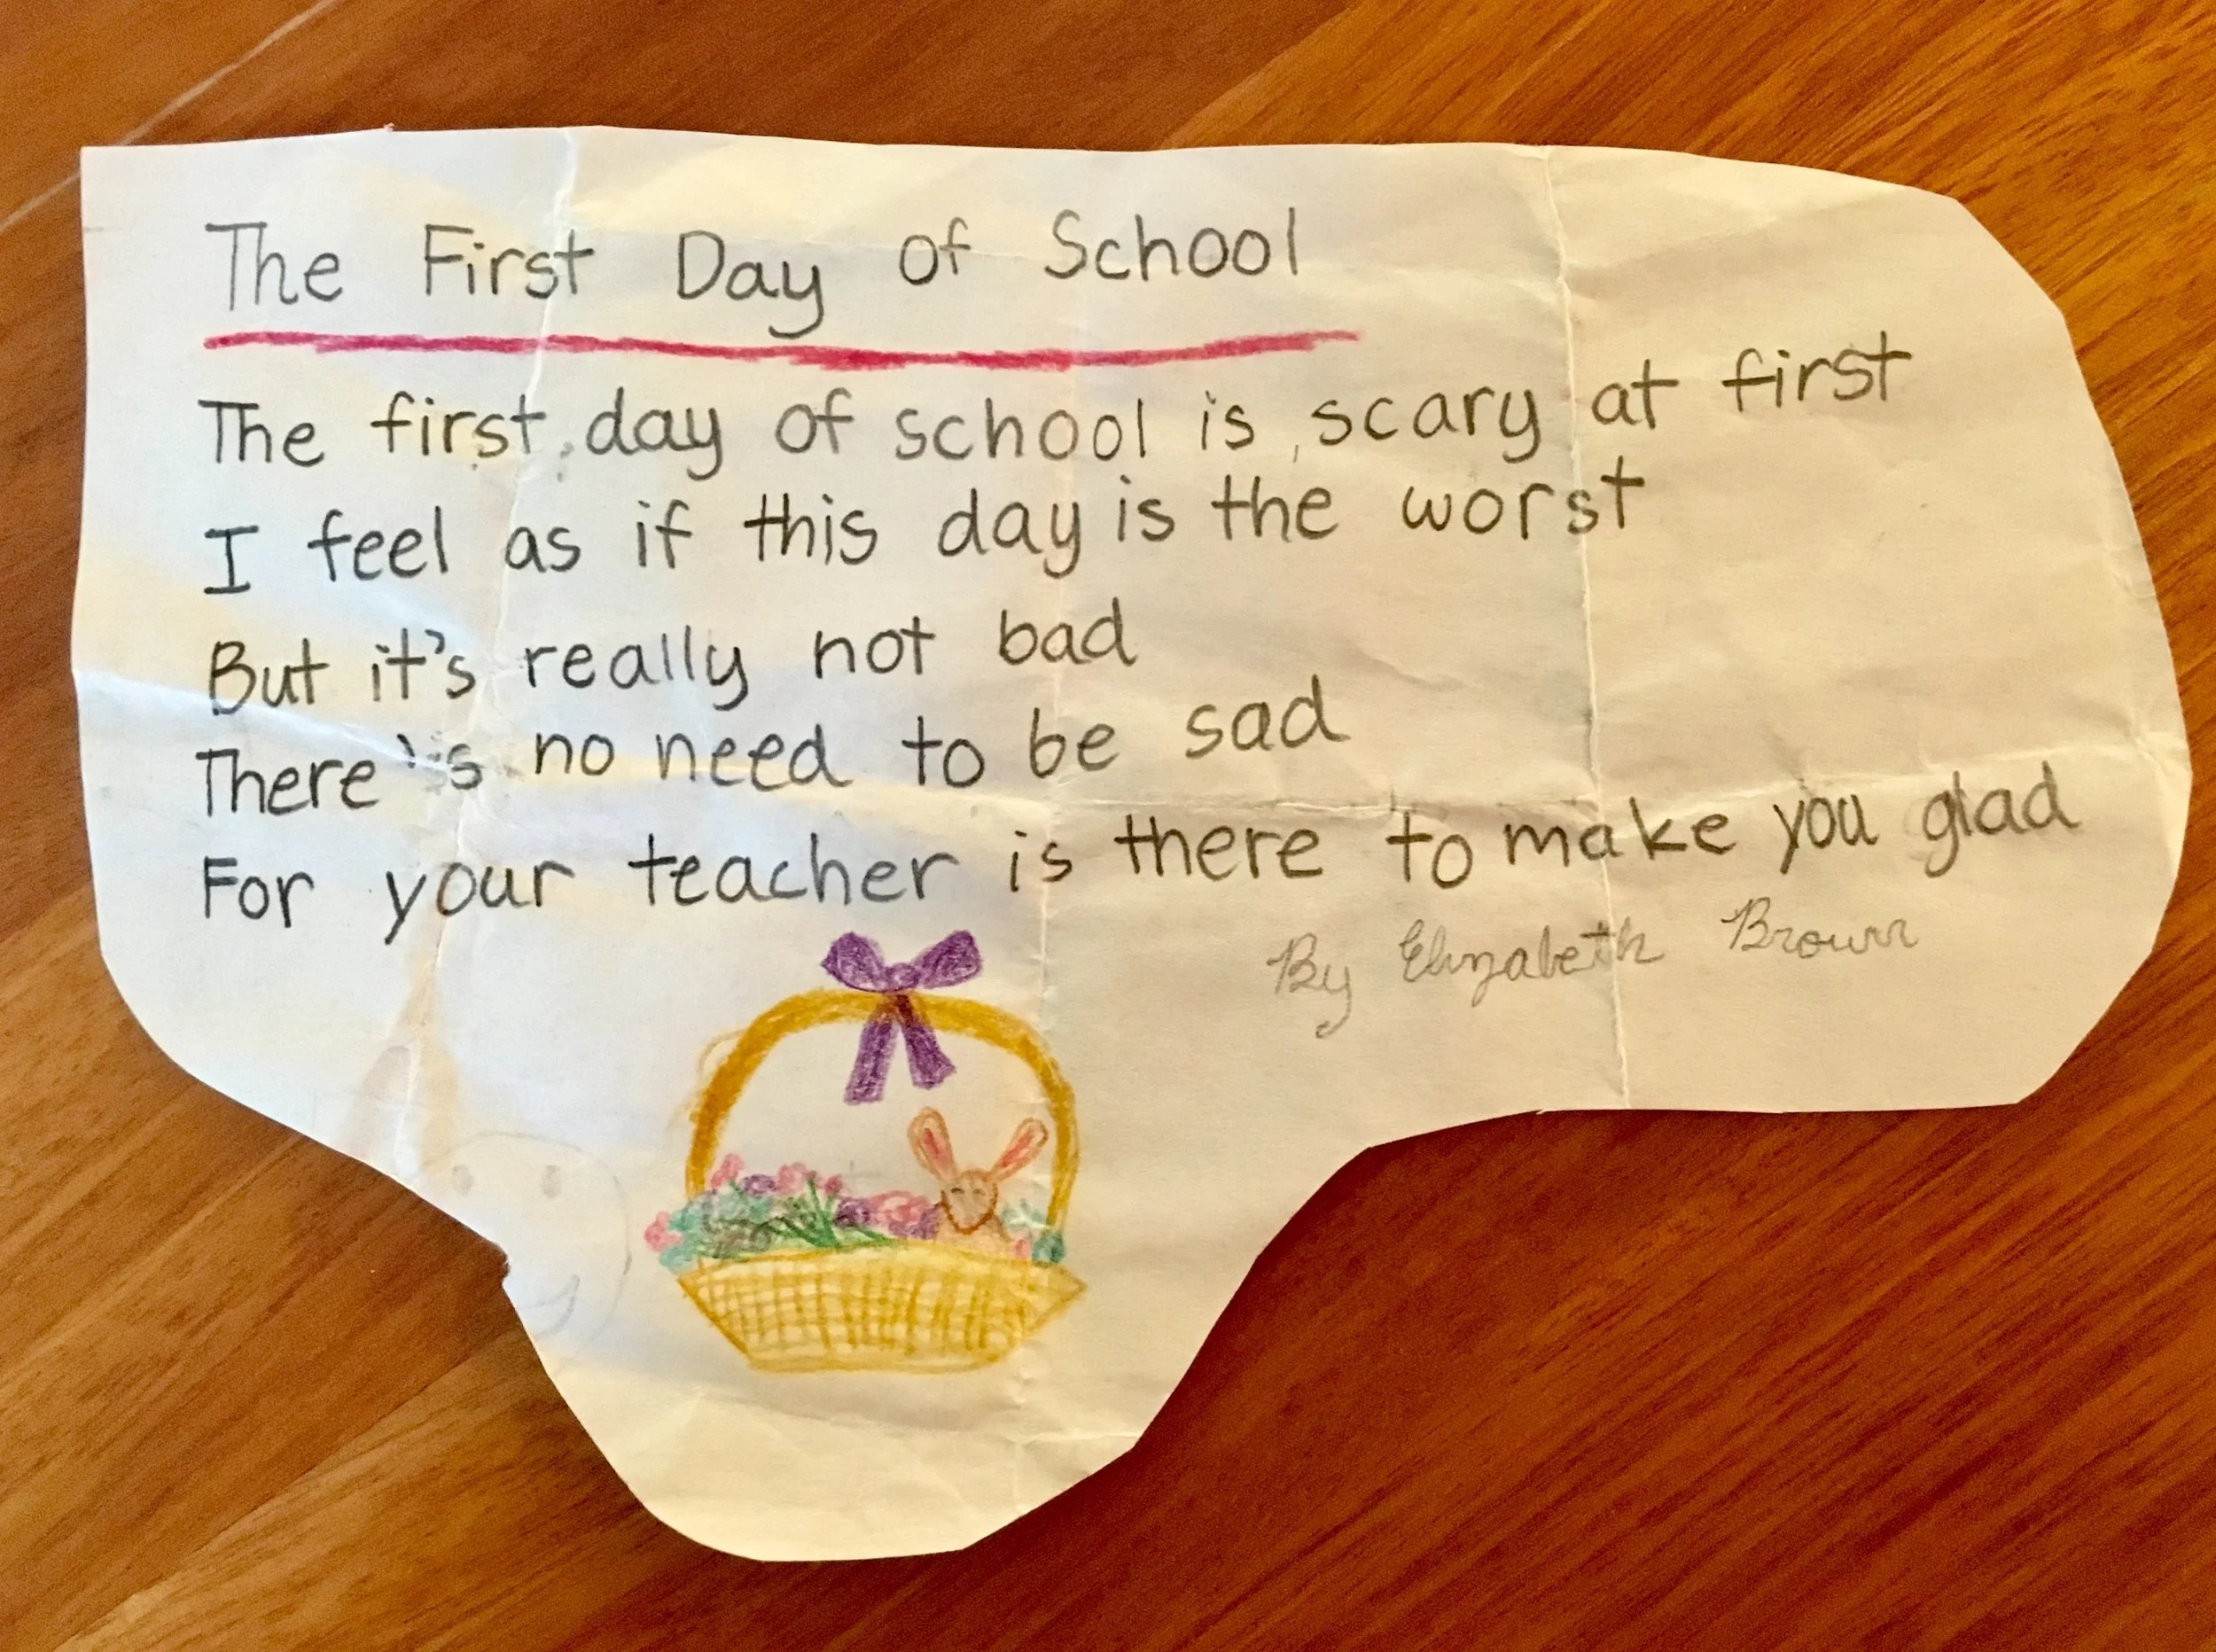 The First Day of School
The first day of school is scary at first
I feel as if this day is the worst
But it's really not bad
There's no need to be sad
For your teacher is there to make you glad
By Elizabeth Brown